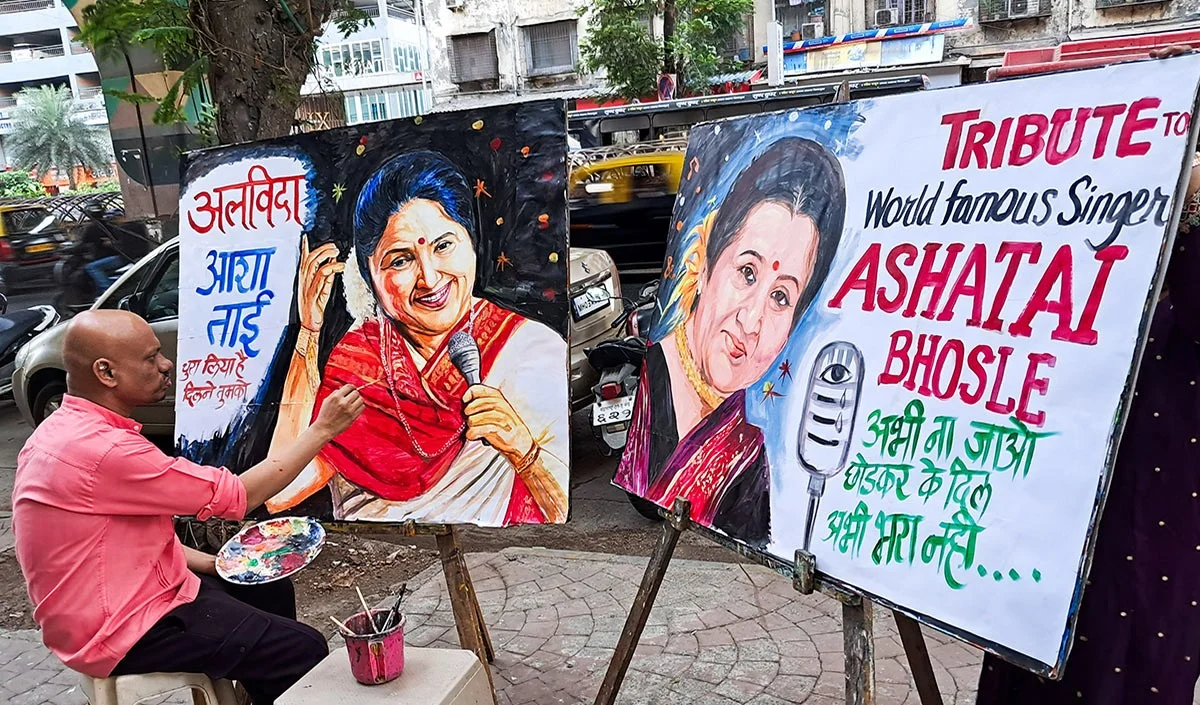 अलविदा
आशा
ताई
चुरा लिया है
दिलने तुमको
TRIBUTE TO
World famous Singer
ASHATAI
BHOSLE
अभी ना जाओ
छोडकर के दिल
अभी भरा नही....